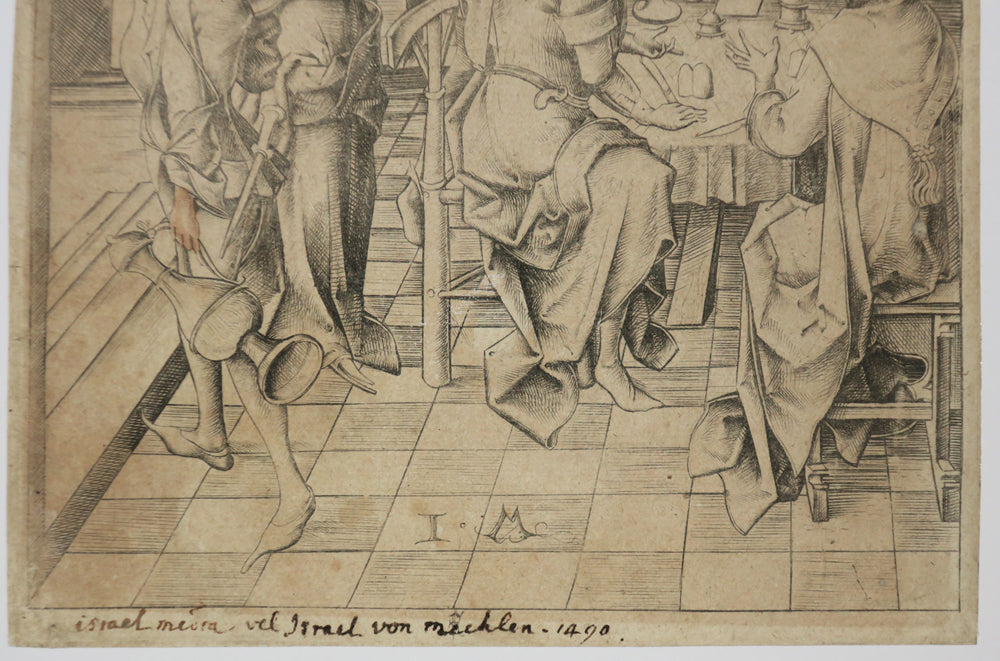 I · M
israel vel Israel von mechlen - 1490.